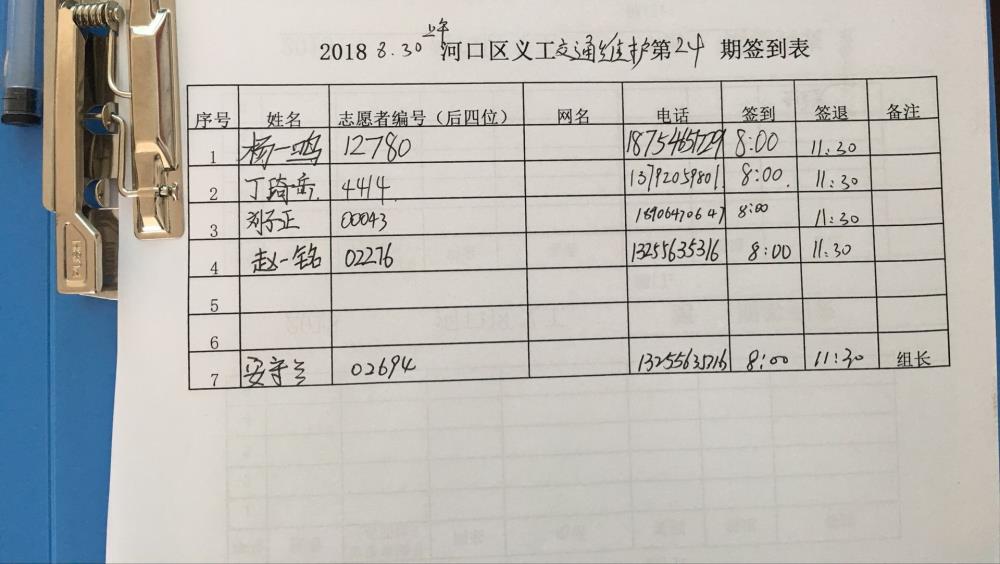 2018 8.30 上午 河口区义工交通维护第24 期签到表
序号 姓名 志愿者编号（后四位） 网名 电话 签到 签退 备注
1 杨一鸣 12780 8:00 11:30
2 丁琦岳 4414 13792059801 8:00 11:30
3 刘子正 00043 18906470647 8:00 11:30
4 赵一铭 02276 13255635316 8:00 11:30
5
6
7 安守兰 02694 8:00 11:30 组长